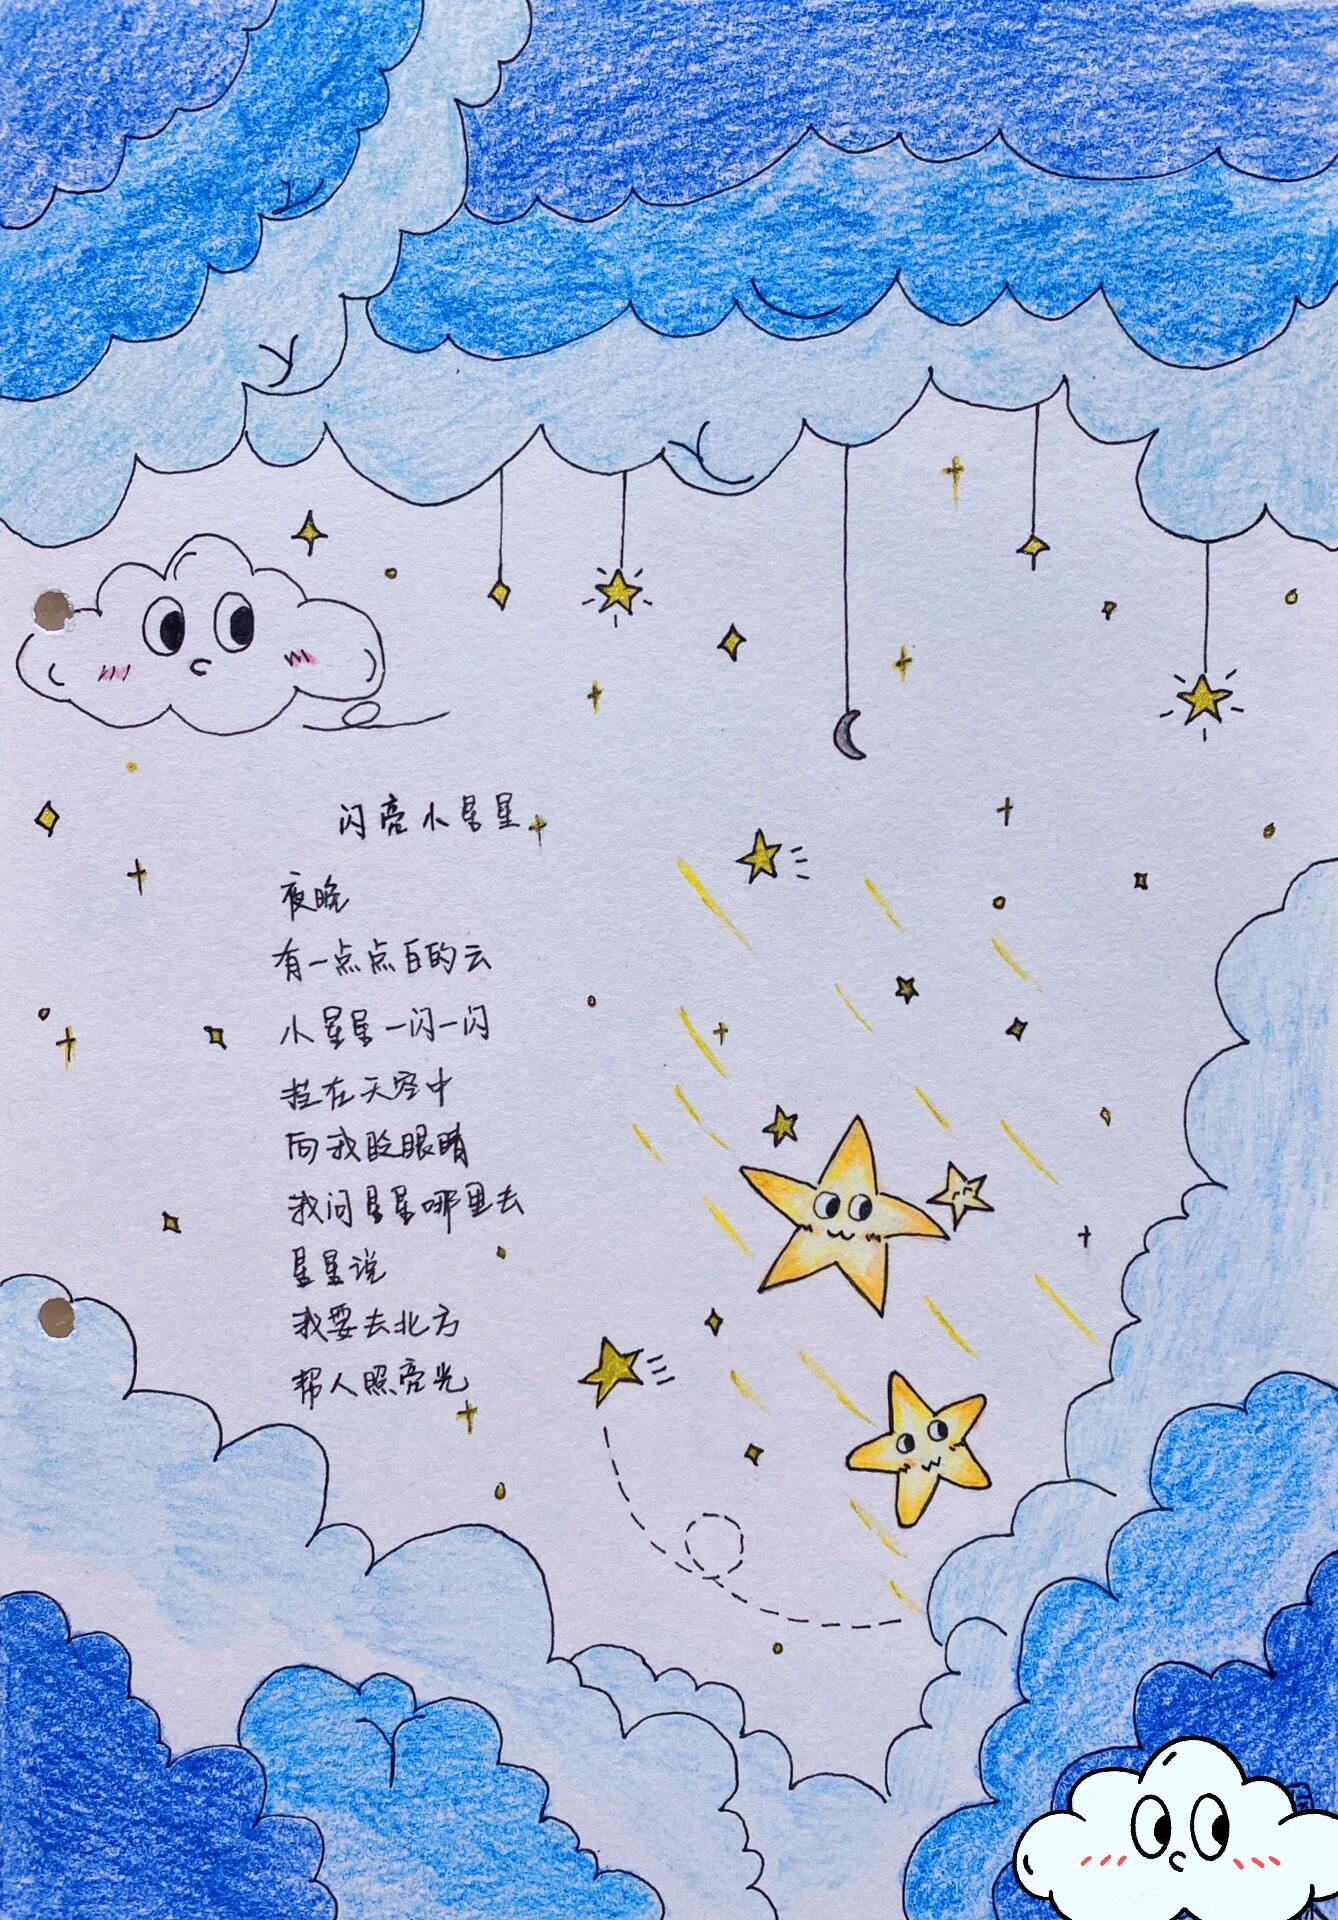 闪亮小星星
夜晚
有一点点白的云
小星星一闪一闪
挂在天空中
向我眨眼睛
我问星星哪里去
星星说
我要去北方
帮人照亮光